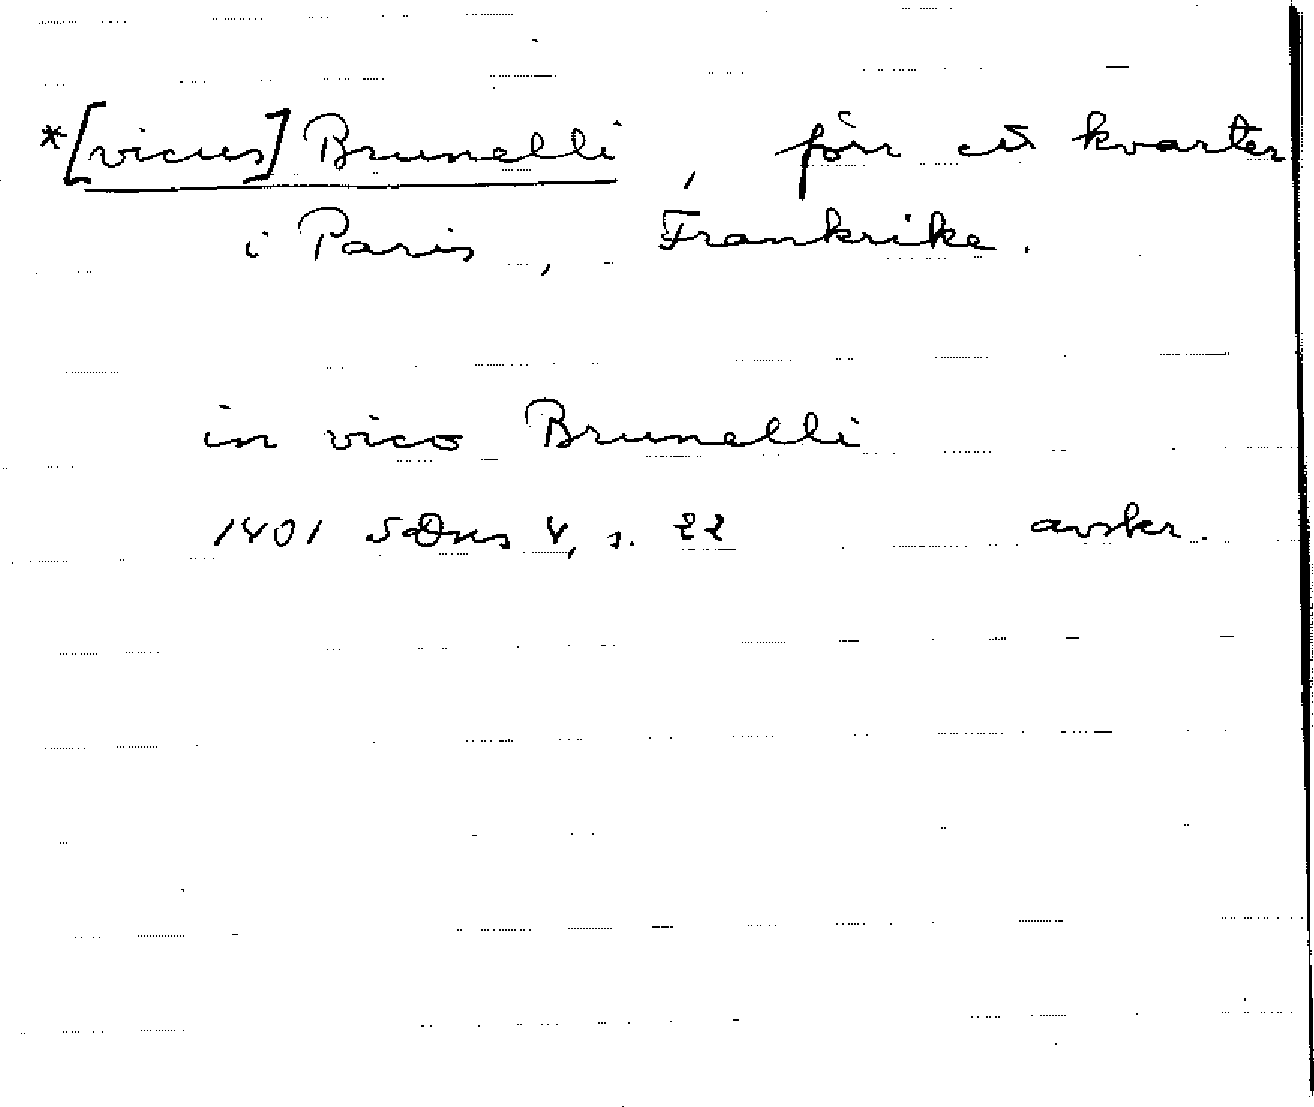 *[vicus] Brunelli, förr ett kvarter
i Paris, Frankrike.
in vico Brunelli
1401 SDns 4, s. 22 avskr.